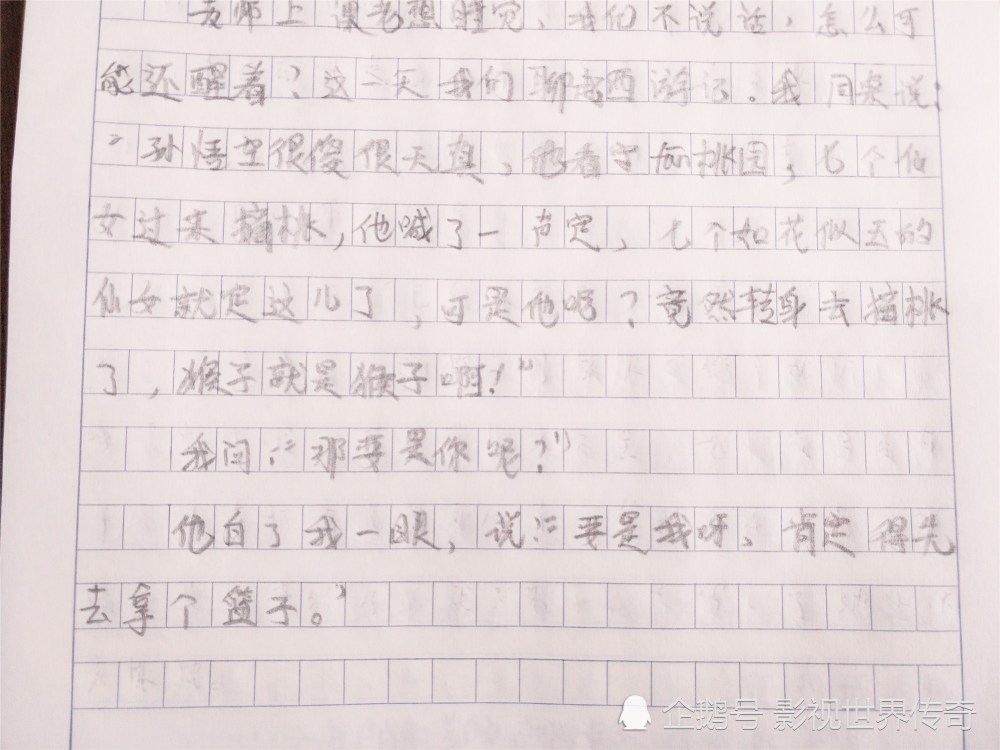 上课老想睡觉,我们不说话,怎么可
能还醒着?这一天我们聊起西游记。我同桌说:
"孙悟空很傻很天真,他看守蟠桃园,七个仙
女过来摘桃,他喊了一声定,七个如花似玉的
仙女就定这儿了,可是他呢?竟然转身去摘桃
了,猴子就是猴子啊!"
我问:"那要是你呢?"
他白了我一眼,说:"要是我呀,肯定得先
去拿个篮子。"
企鹅号 影视世界传奇